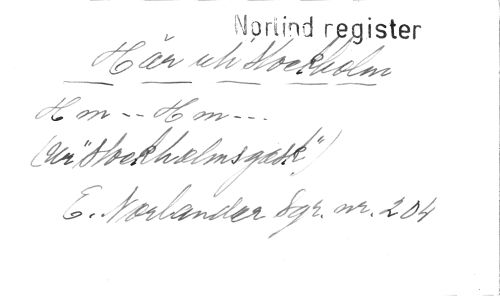 Norlind register
Här uti Stockholm
Hm -- Hm ---
(Ur "Stockholmsgask")
E. Norlander Sgr. nr. 204